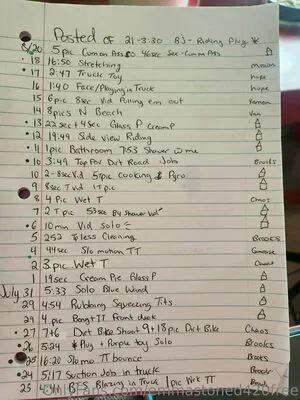 Posted OF 21-3:30 BJ- Riding Plug *
8/20 5pic Cum on Ass 46sec Sex-Cum on Ass
18 16:50 Stretching
17 2:47 Truck Toy hope
16 1:40 Face/Playing in Truck hope
15 6pic 8sec Vid Pulling em out
14 8pics N Beach Van
13 22sec + 4sec Glass P CreamP
12 19:49 Side view Riding
11 1pic Bathroom 7:53 Shower w me
10 3:49 Top Dirt Road Brooks
10 2-8sec Vid 5pic cooking & Pyro
9 8sec T vid 1T pic
8 4 Pic Wet T Chaos
7 2 T pic 53sec BJ Shower Vid
6 10min Vid Solo
5 2:52 Topless Cleaning Brooks
4 44sec Slo motion TT
2 3 pic Wet T
1 19sec Cream Pie Glass P
July 31 5:33 Solo Blue Wind
29 4:54 Rubbing Squeezing Tits
29 4 pic TT Front deck
27 7+6 Dirt Bike Shoot 9+18pic Dirt Bike Chaos
26 5:24 Plug + Purple toy Solo Brooks
25 16:20 Slo mo TT bounce Brooks
24 5:17 Suction Job in truck Brooks
25 Blazing in Truck 1pic Wet TT